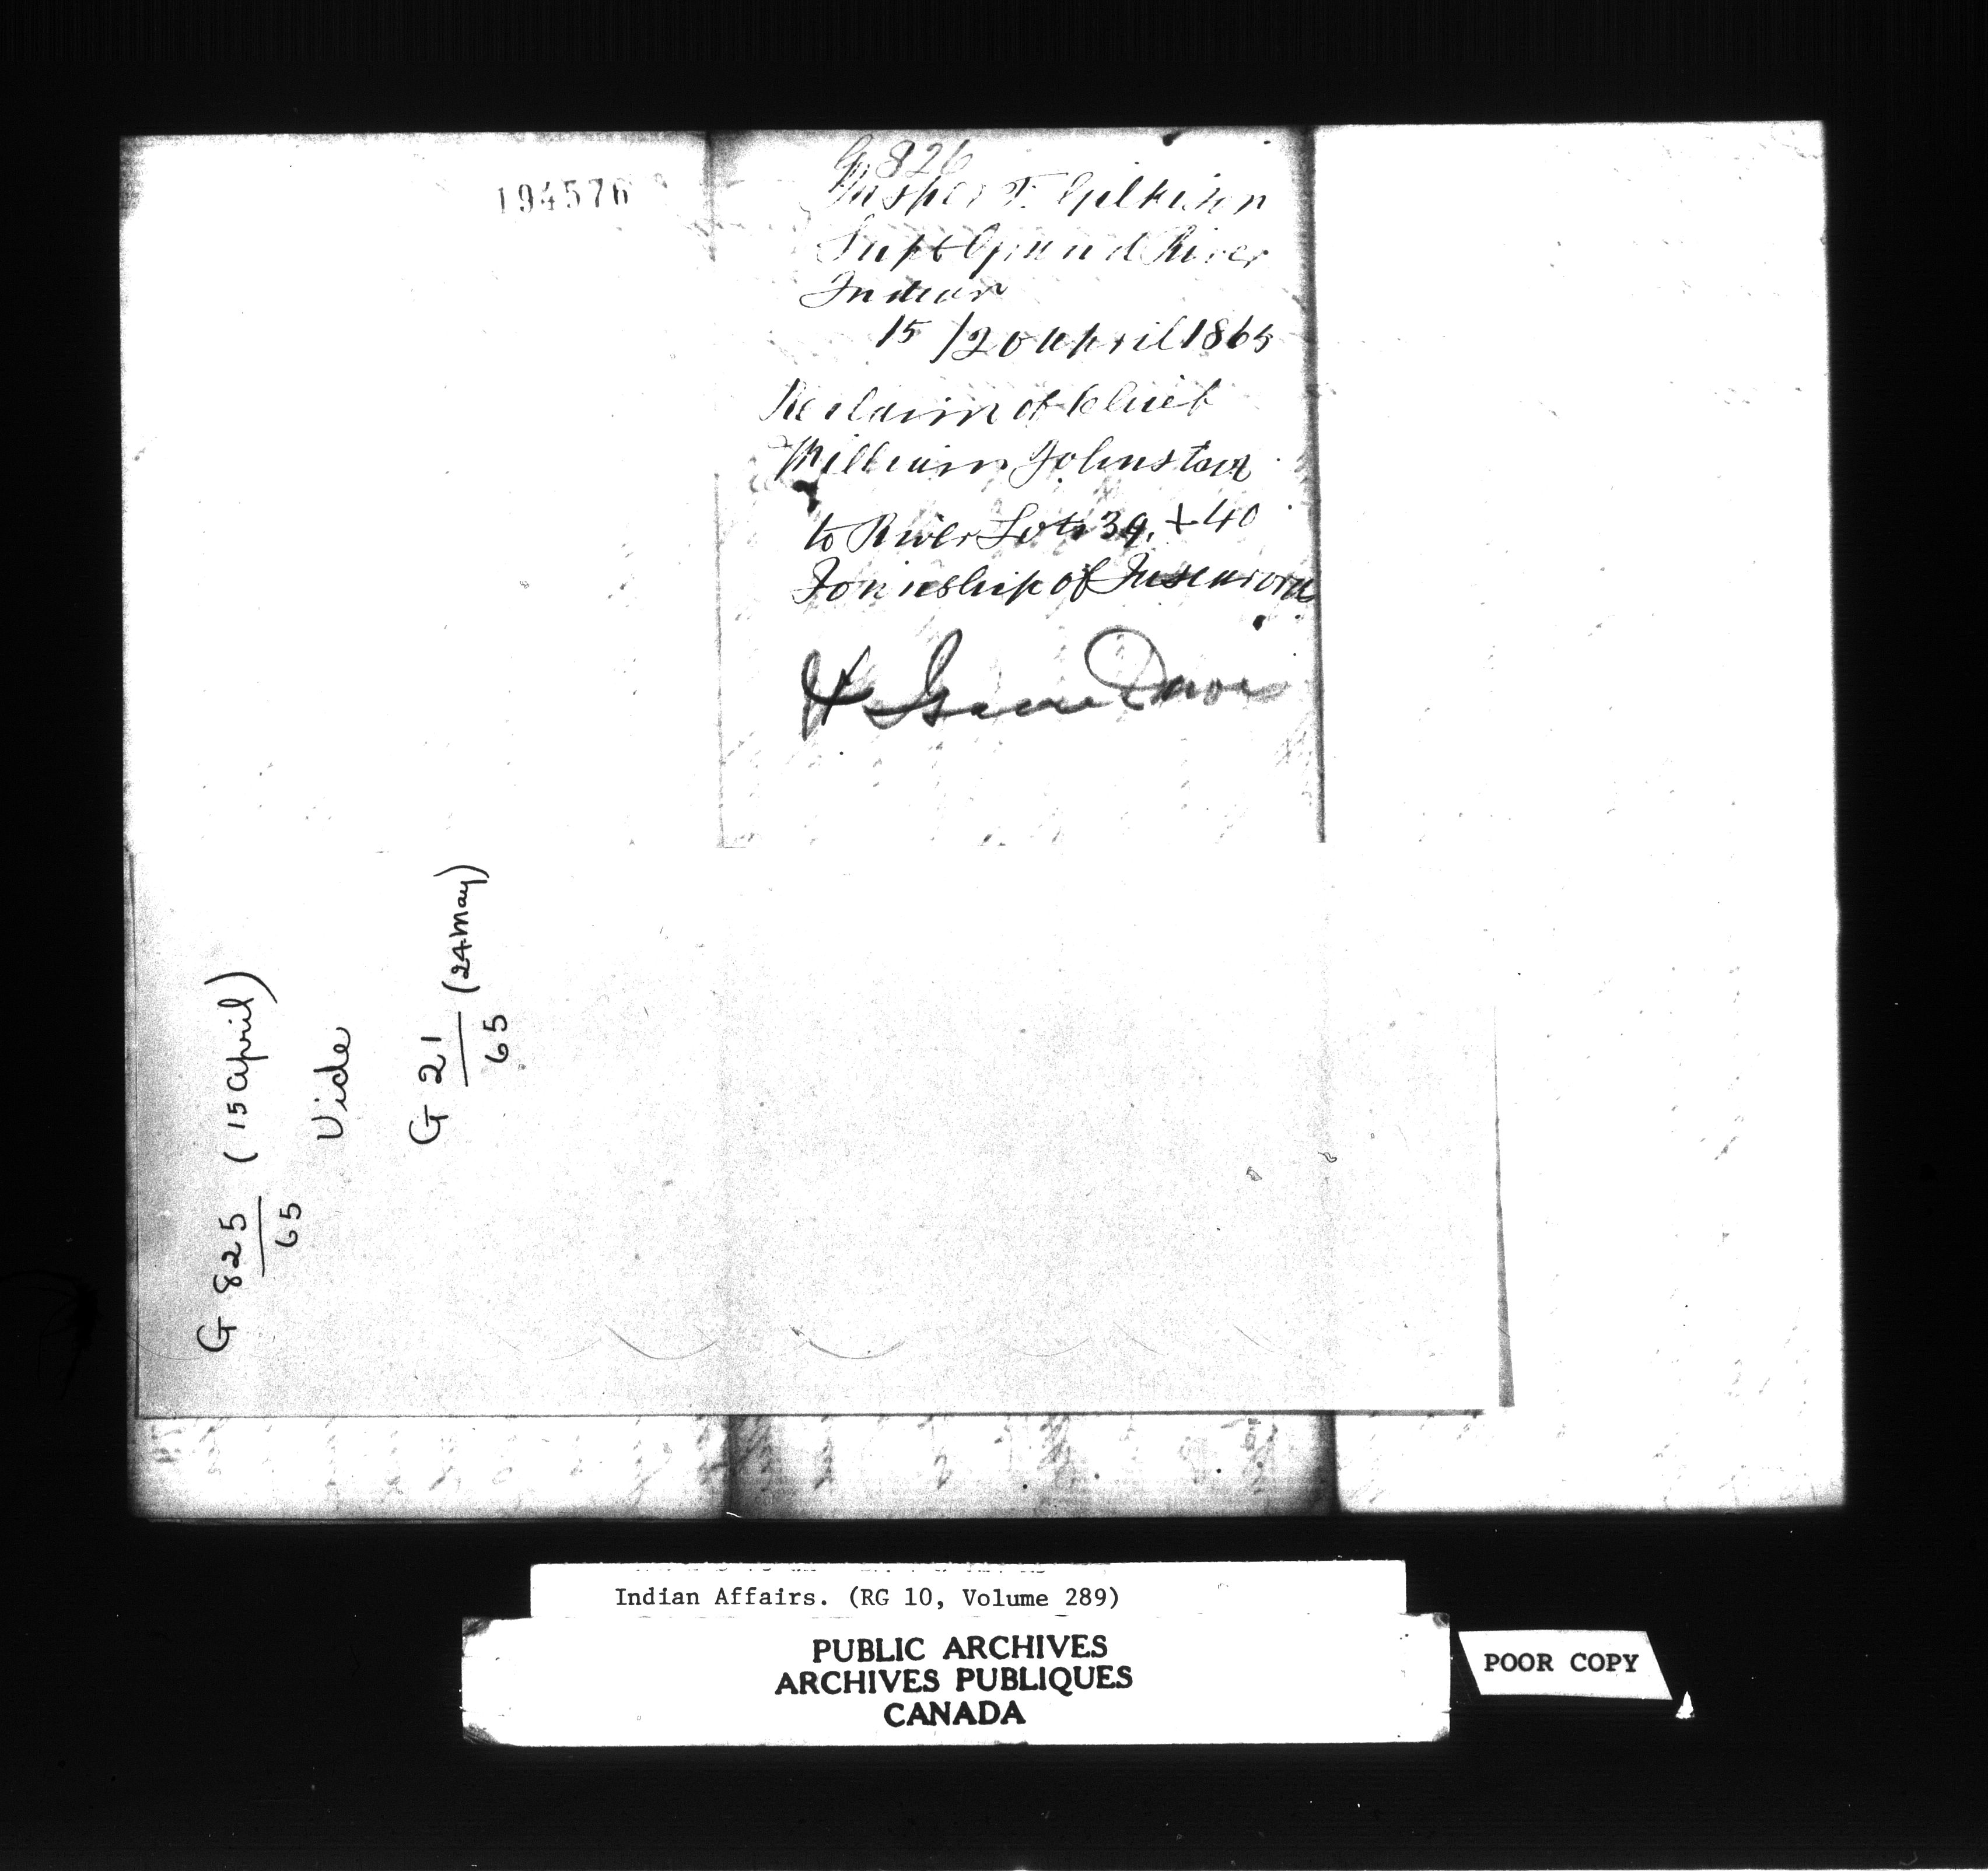 194576
G 826
Jasper T. Gilkison
Supt Grand River
Indian
15/20 April 1865
Re claim of Chief
William Johnston
to River Lots 39, + 40
Township of Tuscarora
G 825/65 (15 April)
Vide
G 21/65 (24 May)
Indian Affairs. (RG 10, Volume 289)
PUBLIC ARCHIVES
ARCHIVES PUBLIQUES
CANADA
POOR COPY